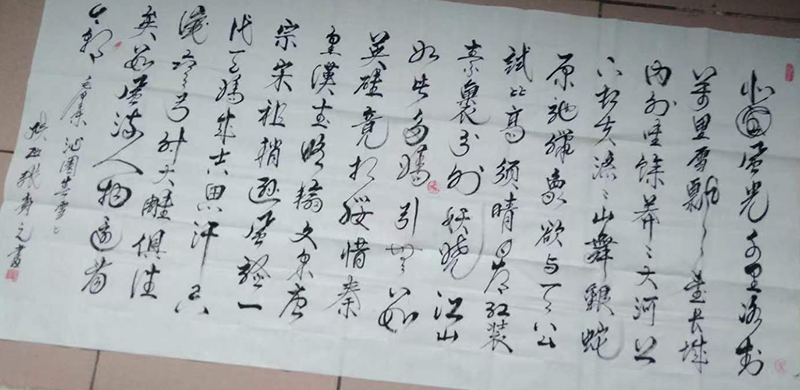 北国風光千里冰封
萬里雪飘望长城
内外唯馀莽〻大河上
下顿失滔〻山舞银蛇
原驰蜡象欲与天公
試比高须晴日看红装
素裹分外妖娆江山
如此多娇引無数
英雄竞折腰惜秦
皇漢武略输文采唐
宗宋祖稍逊風骚一
代天骄成吉思汗只
识弯弓射大雕俱往
矣数風流人物还看
今朝 毛泽东沁園春雪